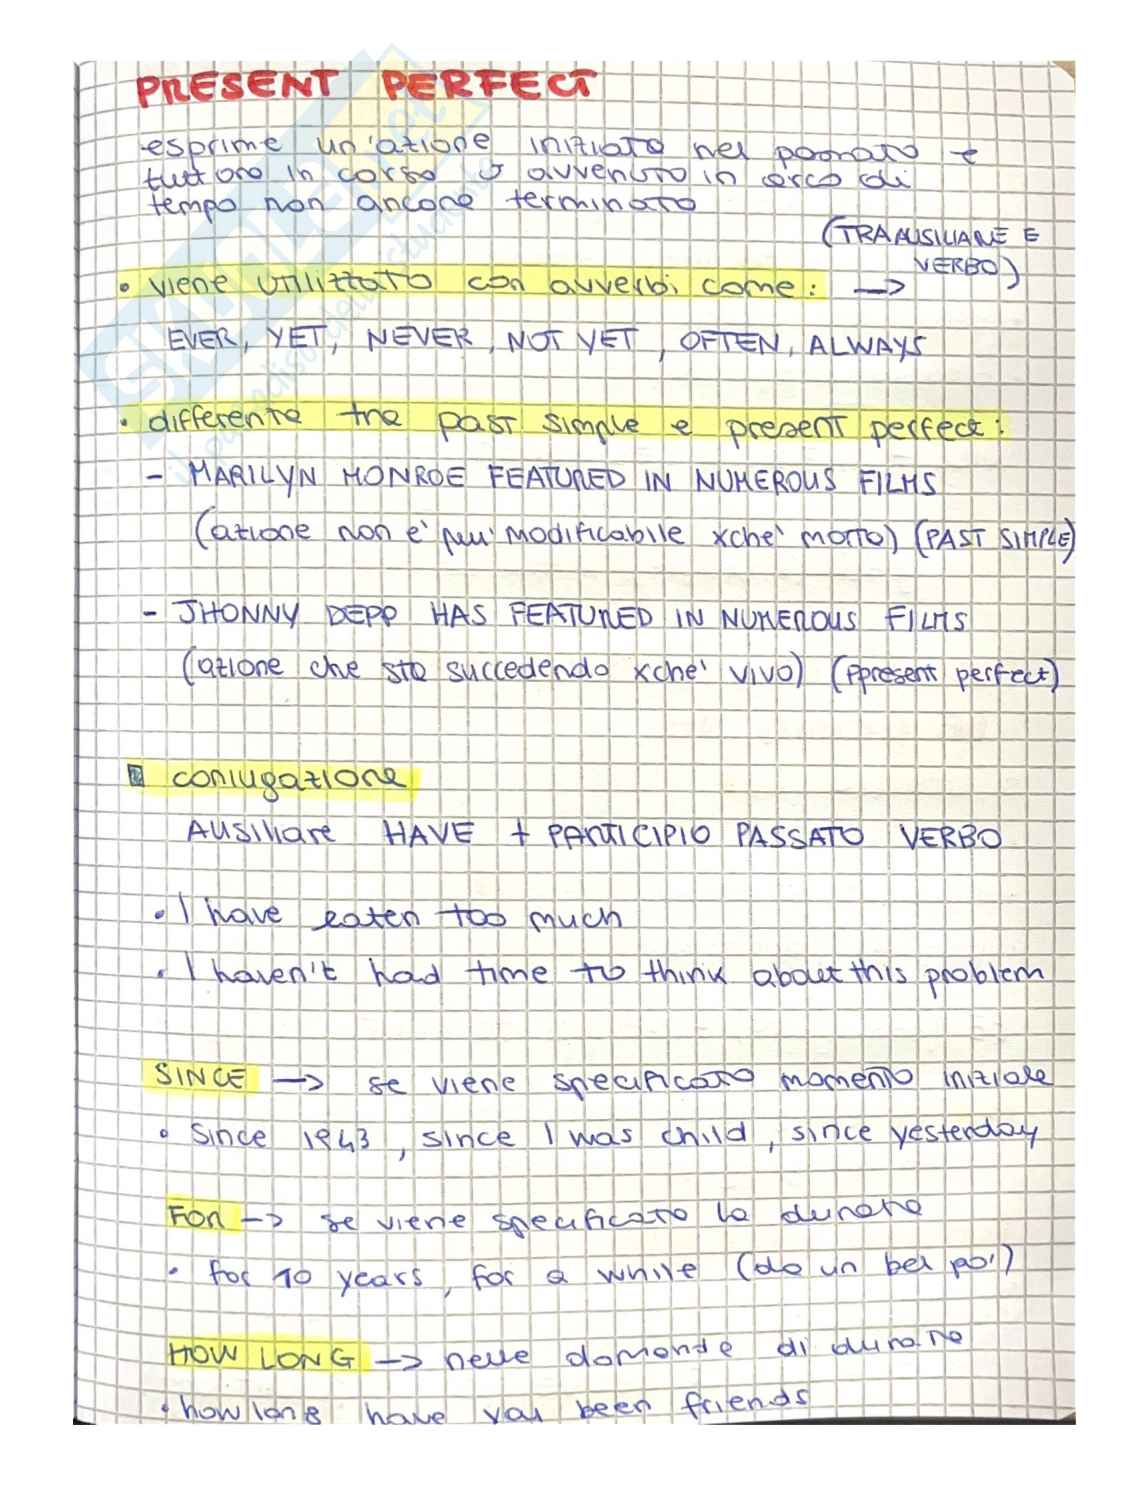 PRESENT PERFECT
esprime un'azione iniziata nel passato e
tuttora in corso o avvenuta in arco di
tempo non ancora terminato
(TRA AUSILIARE E
VERBO)
• viene utilizzato con avverbi come: →
EVER, YET, NEVER, NOT YET, OFTEN, ALWAYS
• differenza tra past simple e present perfect:
- MARILYN MONROE FEATURED IN NUMEROUS FILMS
(azione non è più modificabile xchè morto) (PAST SIMPLE)
- JHONNY DEPP HAS FEATURED IN NUMEROUS FILMS
(azione che sta succedendo xchè vivo) (Ppresent perfect)
coniugazione
Ausiliare HAVE + PARTICIPIO PASSATO VERBO
• I have eaten too much
• I haven't had time to think about this problem
SINCE → se viene specificato momento iniziale
• Since 1943, since I was child, since yesterday
FOR → se viene specificato la durata
• for 10 years, for a while (da un bel po')
HOW LONG → nelle domande di durata
• how long have you been friends